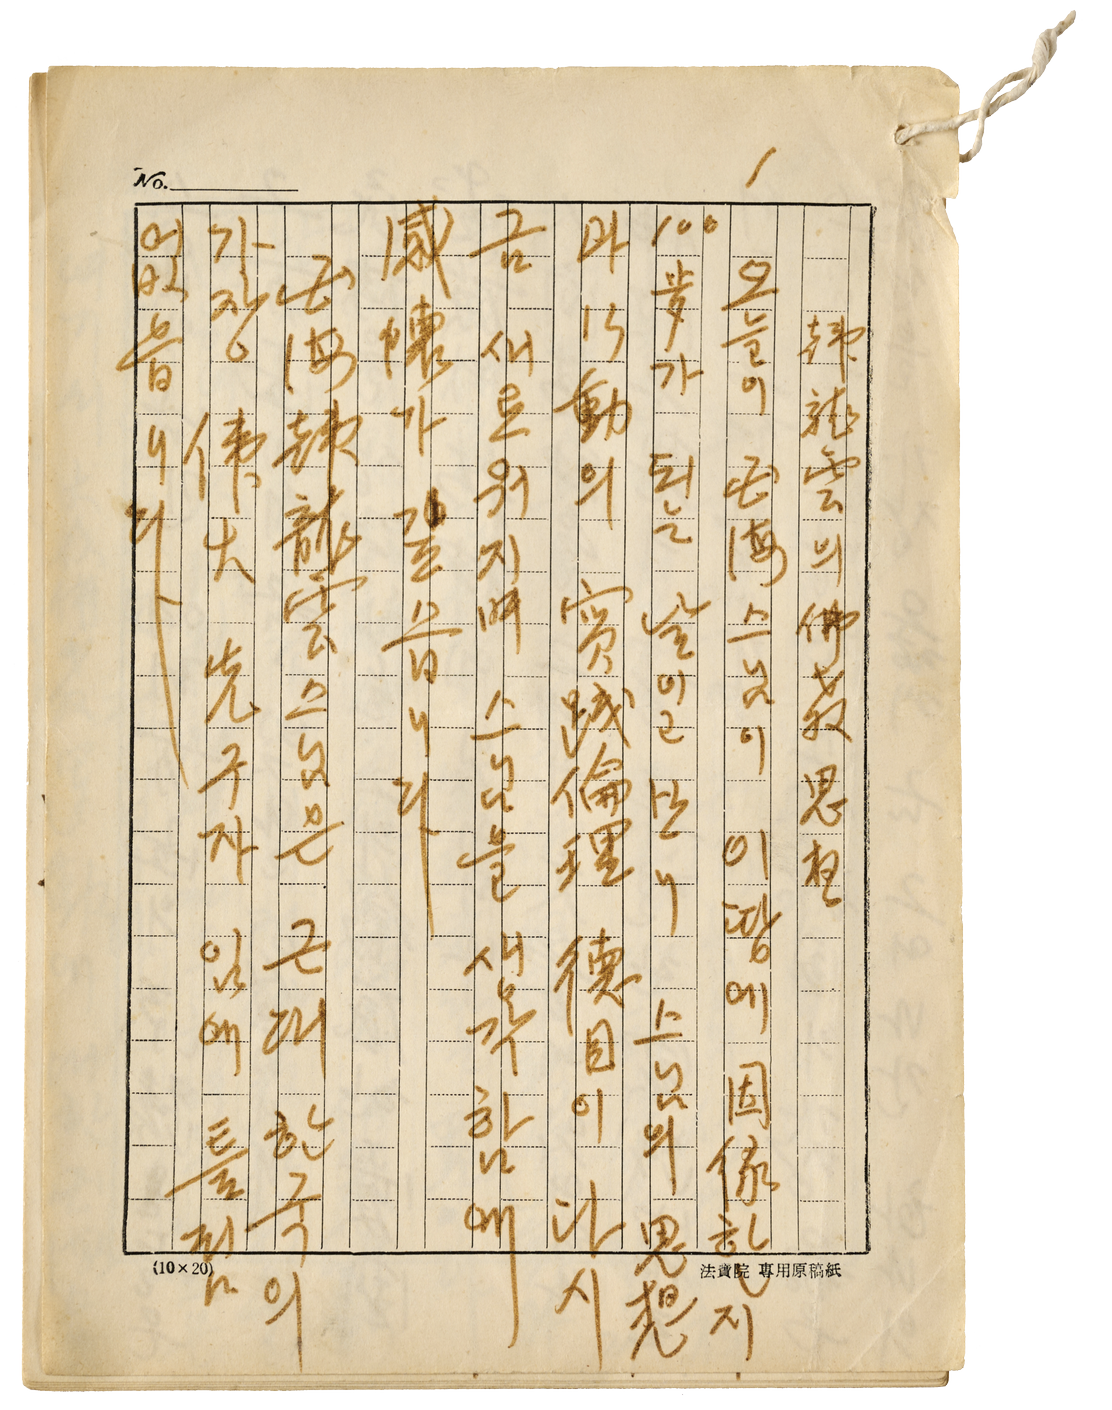 No.
1
韓龍雲의 佛敎思想
오늘이 卍海 스님이 이 땅에 因緣한지
100岁가 되는 날이고 보니 스님의 思想
과 行動의 實踐倫理 德目이 다시
금 새로워지며 스님을 생각함에
感懷가 깊읍니다
卍海 韓龍雲 스님은 근대 한국의
가장 偉大 先구자 임에 틀림
없읍니다
(10×20)
法寶院 專用原稿紙